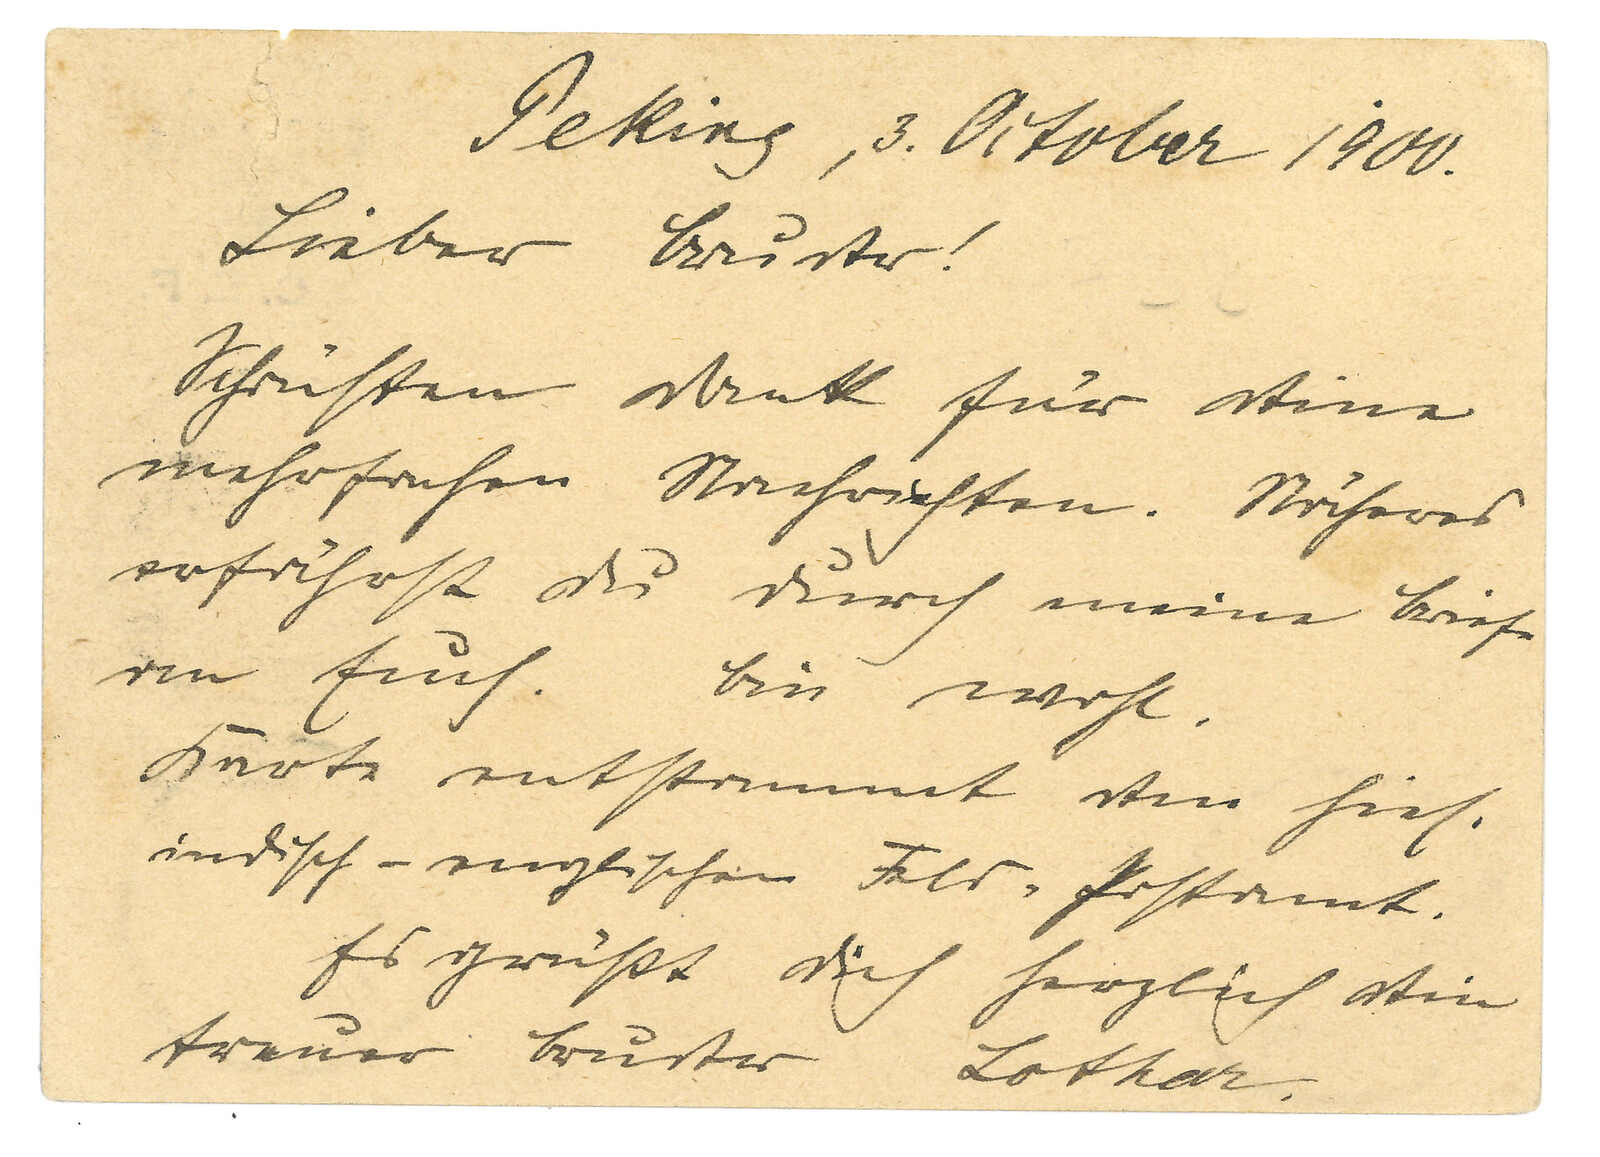 Peking, 3. October 1900.
Lieber Bruder!
Schönsten Dank für Deine
mehrfachen Nachrichten. Näheres
erfährst Du durch meine Briefe
an Euch. Bin wohl.
Karte entstammt dem hies.
indisch-englischen Feld-Postamt.
Es grüßt Dich herzlich Dein
treuer Bruder Lothar.